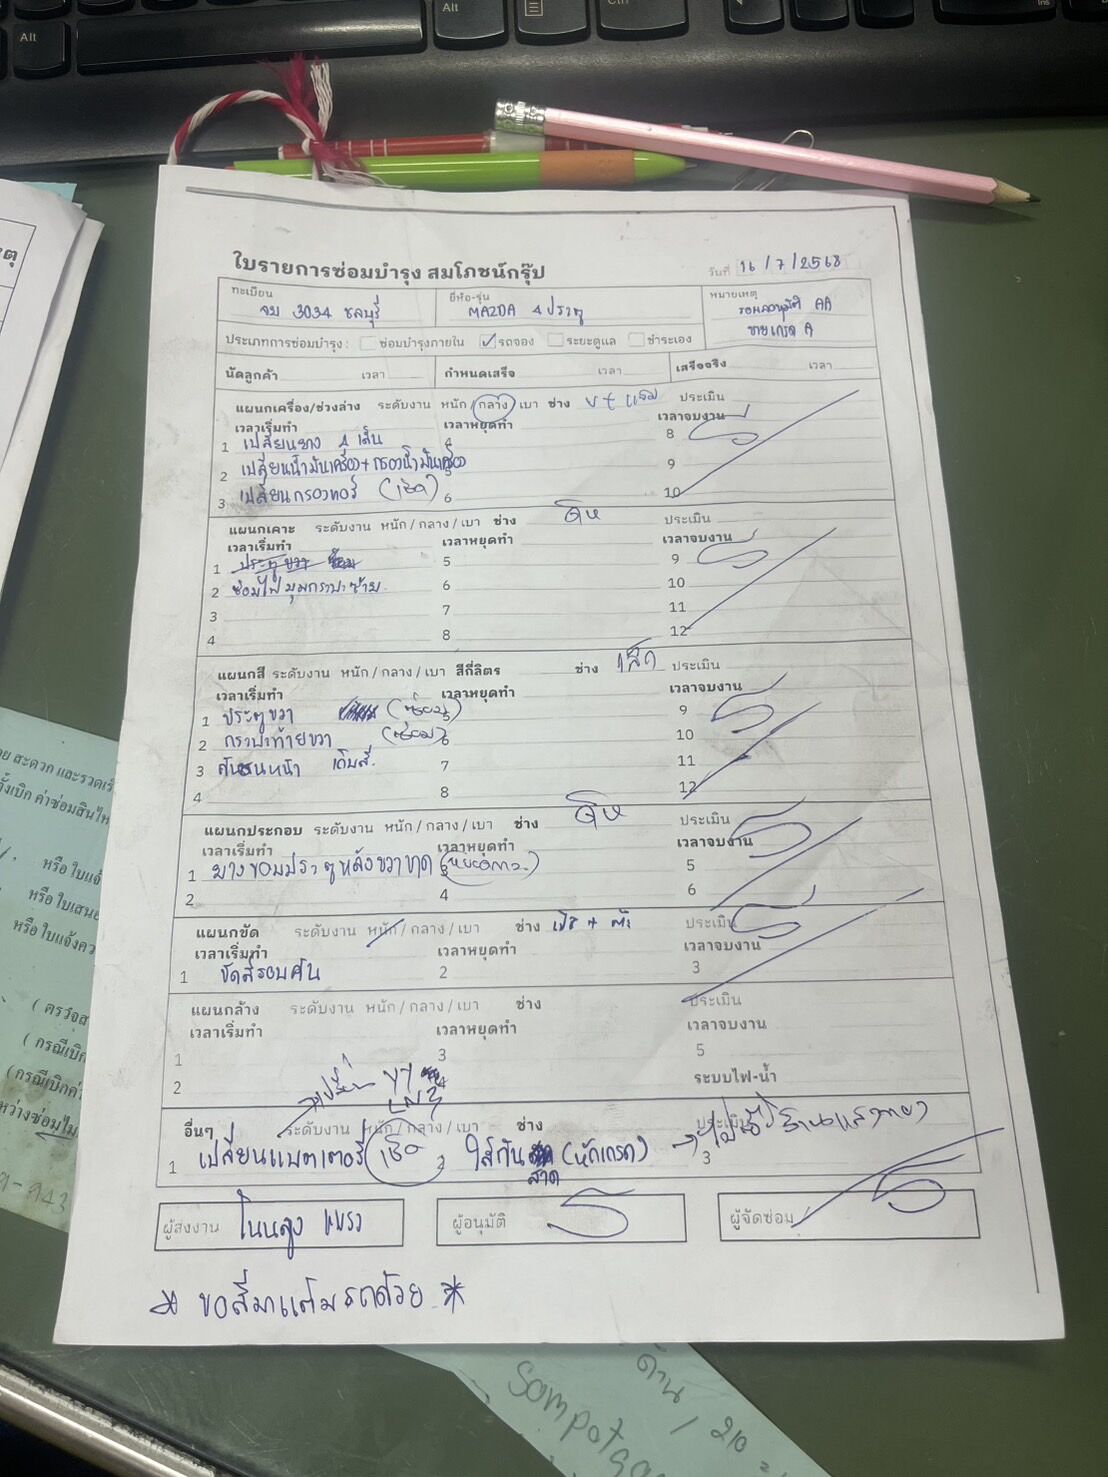 Alt
Alt
Ctrl
Ins
ใบรายการซ่อมบำรุง สมโภชน์กรุ๊ป
วันที่ 16/7/2568
ทะเบียน
จบ 3034 ชลบุรี
ยี่ห้อ-รุ่น
MAZDA 4 ประตู
หมายเหตุ
รออนุมัติ AA
ขายเกรด A
ประเภทการซ่อมบำรุง: ซ่อมบำรุงภายใน ✓รถจอง ระยะดูแล ชำระเอง
นัดลูกค้า เวลา กำหนดเสร็จ เวลา เสร็จจริง เวลา
แผนกเครื่อง/ช่วงล่าง ระดับงาน หนัก/กลาง/เบา ช่าง ประเมิน
เวลาเริ่มทำ เวลาหยุดทำ เวลาจบงาน
1 เปลี่ยนยาง 4 เส้น 4 8
2 เปลี่ยนน้ำมันเครื่อง+กรองน้ำมันเครื่อง 9
3 เปลี่ยนกรองแอร์ (เช็ค) 6 10
แผนกเคาะ ระดับงาน หนัก/กลาง/เบา ช่าง ประเมิน
เวลาเริ่มทำ เวลาหยุดทำ เวลาจบงาน
1 ประตูขวา ซ่อม 5 9
2 ซ่อมไฟมุมกระบะซ้าย 6 10
3 7 11
4 8 12
แผนกสี ระดับงาน หนัก/กลาง/เบา สีกี่ลิตร ช่าง เล็ก ประเมิน
เวลาเริ่มทำ เวลาหยุดทำ เวลาจบงาน
1 ประตูขวา (ซ่อม) 5 9
2 กระบะท้ายขวา (ซ่อม) 6 10
3 กันชนหน้า เก็บสี 7 11
4 8 12
แผนกประกอบ ระดับงาน หนัก/กลาง/เบา ช่าง ประเมิน
เวลาเริ่มทำ เวลาหยุดทำ เวลาจบงาน
1 ยางขอบประตูหลังขวาขาด (หยอดกาว) 3 5
2 4 6
แผนกขัด ระดับงาน หนัก/กลาง/เบา ช่าง ประเมิน
เวลาเริ่มทำ เวลาหยุดทำ เวลาจบงาน
1 ขัดสีรอบคัน 2 3
แผนกล้าง ระดับงาน หนัก/กลาง/เบา ช่าง ประเมิน
เวลาเริ่มทำ เวลาหยุดทำ เวลาจบงาน
1 3 5
2 4 ระบบไฟ-น้ำ
อื่นๆ ระดับงาน หนัก/กลาง/เบา ช่าง ประเมิน
1 เปลี่ยนแบตเตอรี่ (เช็ค) 2 ใส่กันสาด (หักเกรด) 3
ผู้ส่งงาน
ผู้อนุมัติ
ผู้จัดซ่อม
* ขอสีมาแต้มรถด้วย *
ด้าน / 210
Sompot